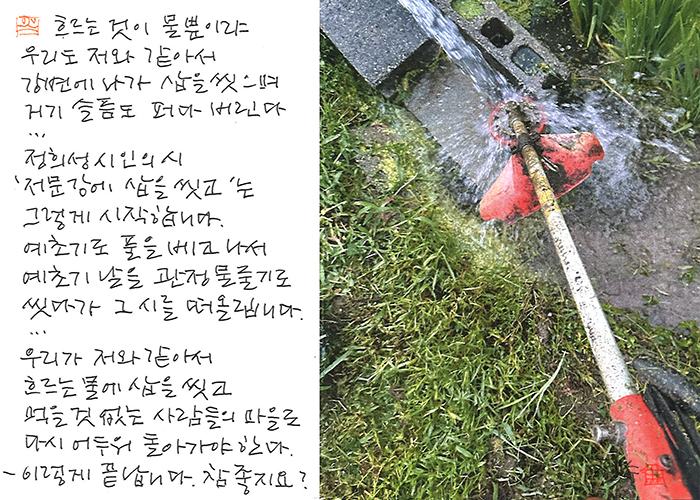 흐르는 것이 물뿐이랴
우리도 저와 같아서
강변에 나가 삽을 씻으며
거기 슬픔도 퍼다 버린다
...
정희성 시인의 시
'저문강에 삽을 씻고'는
그렇게 시작합니다.
예초기로 풀을 베고 나서
예초기 날을 관정 물줄기로
씻다가 그 시를 떠올립니다.
...
우리가 저와 같아서
흐르는 물에 삽을 씻고
먹을 것 없는 사람들의 마을로
다시 어두워 돌아가야 한다.
- 이렇게 끝납니다. 참 좋지요?